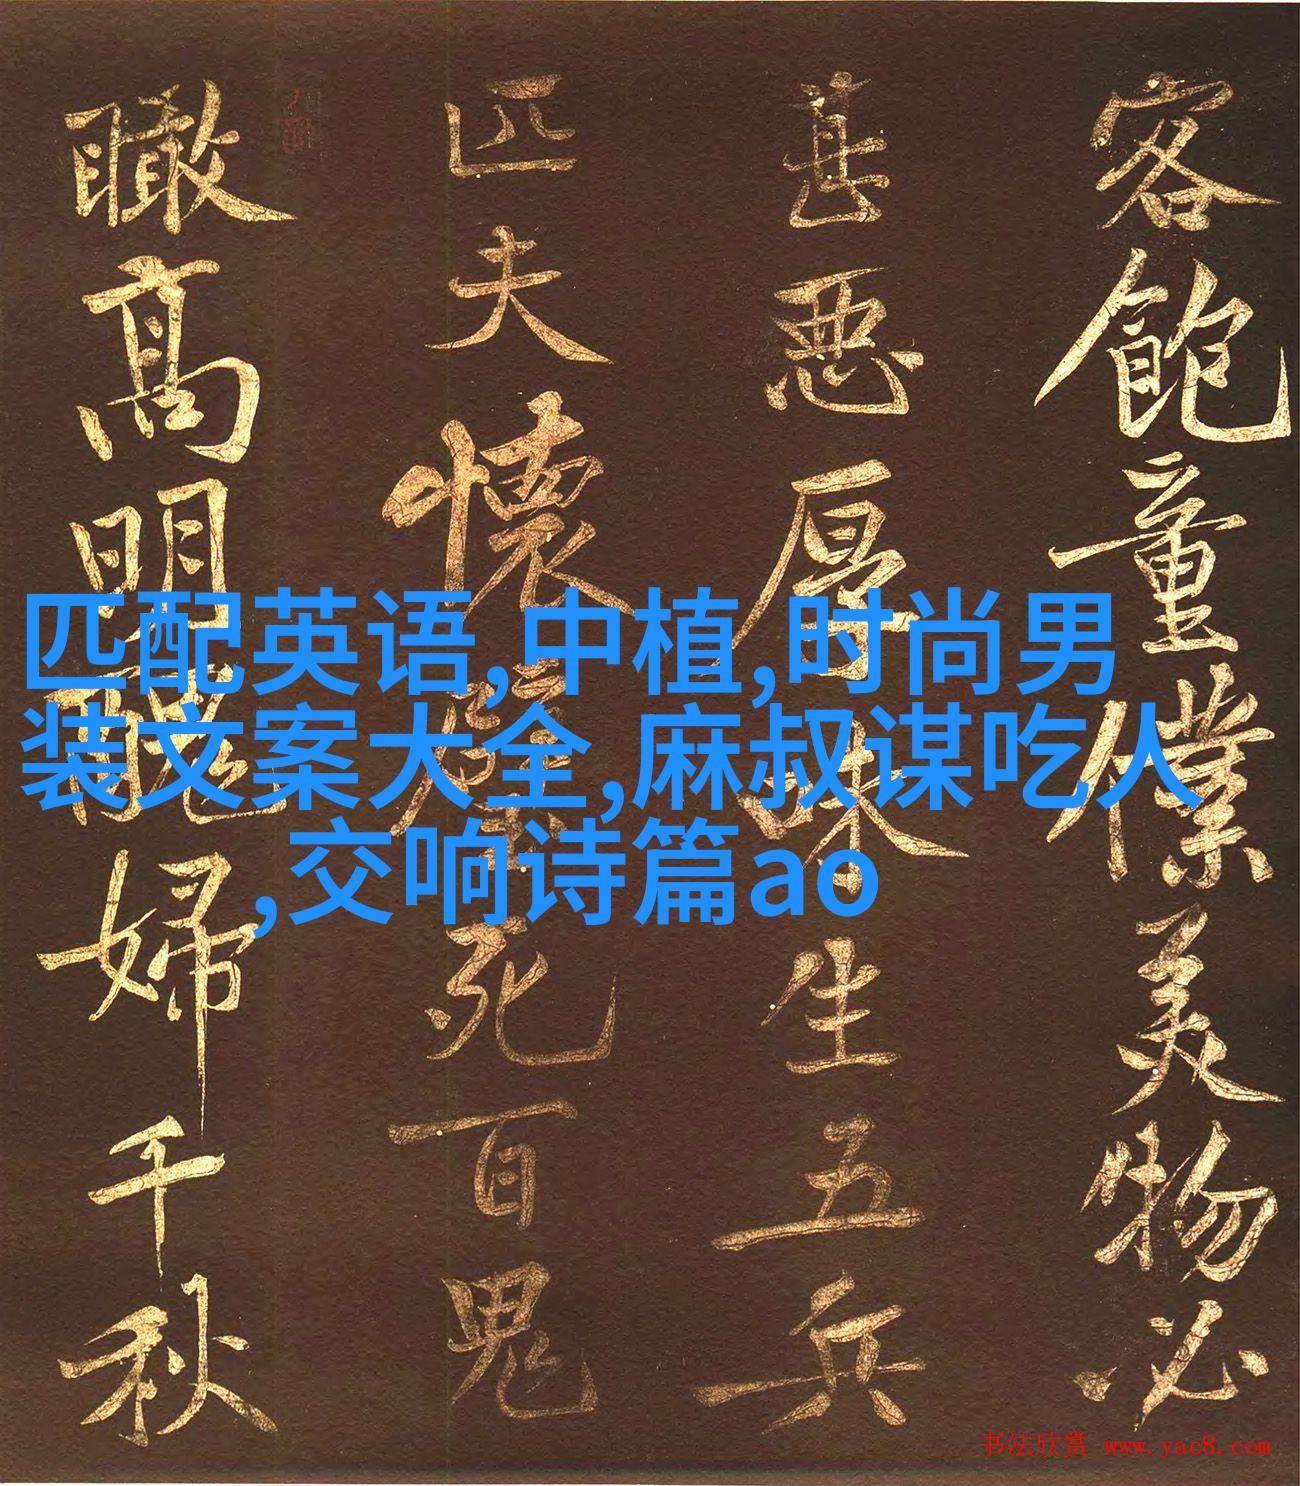 客飽童僕美物必
甚惡厚味生五兵
匹夫懷璧死百鬼
瞰高明醜婦千秋
匹配英语,中植,时尚男
装文案大全,麻叔谋吃人
,交响诗篇ao
书法欣赏 www.yac8.com